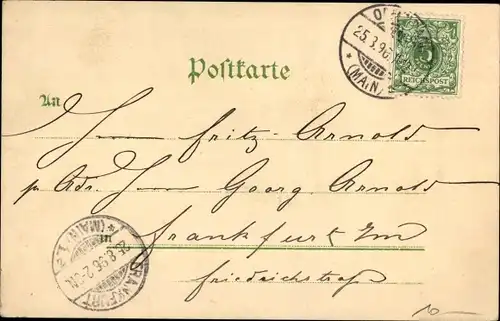 Postkarte
An
Herrn Fritz Arnold
p. Adr. Herrn Georg Arnold
in
Frankfurt a/m
Friedrichstraße
25.3.96
(MAIN)
5
REICHSPOST
FRANKFURT
(MAIN)
25.3.96
10